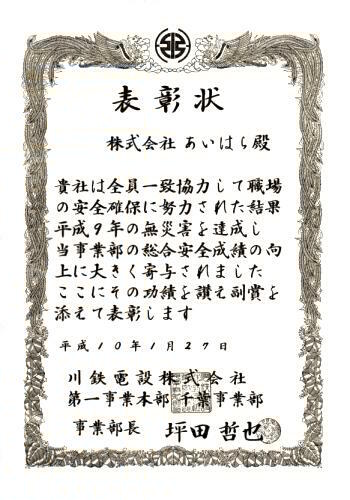 表彰状
株式会社 あいはら殿
貴社は全員一致協力して職場
の安全確保に努力された結果
平成9年の無災害を達成し
当事業部の総合安全成績の向
上に大きく寄与されました
ここにその功績を讃え副賞を
添えて表彰します
平成10年1月27日
川鉄電設株式会社
第一事業本部 千葉事業部
事業部長 坪田哲也